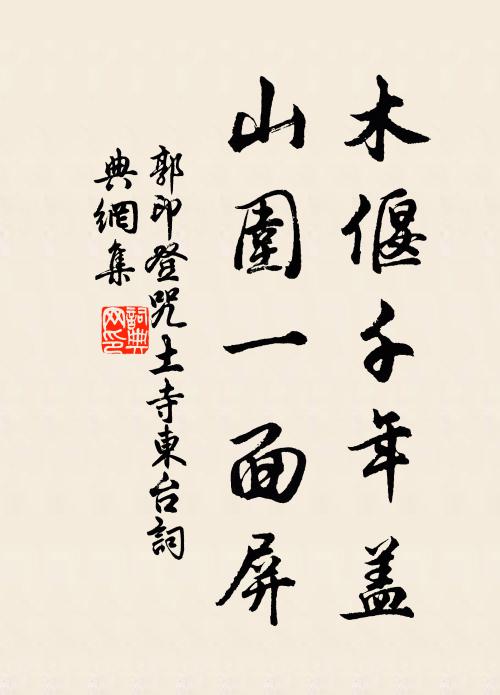 木偃千年盖
山圍一面屏
郭印登咒土寺東台詞
典網集
詞典网印